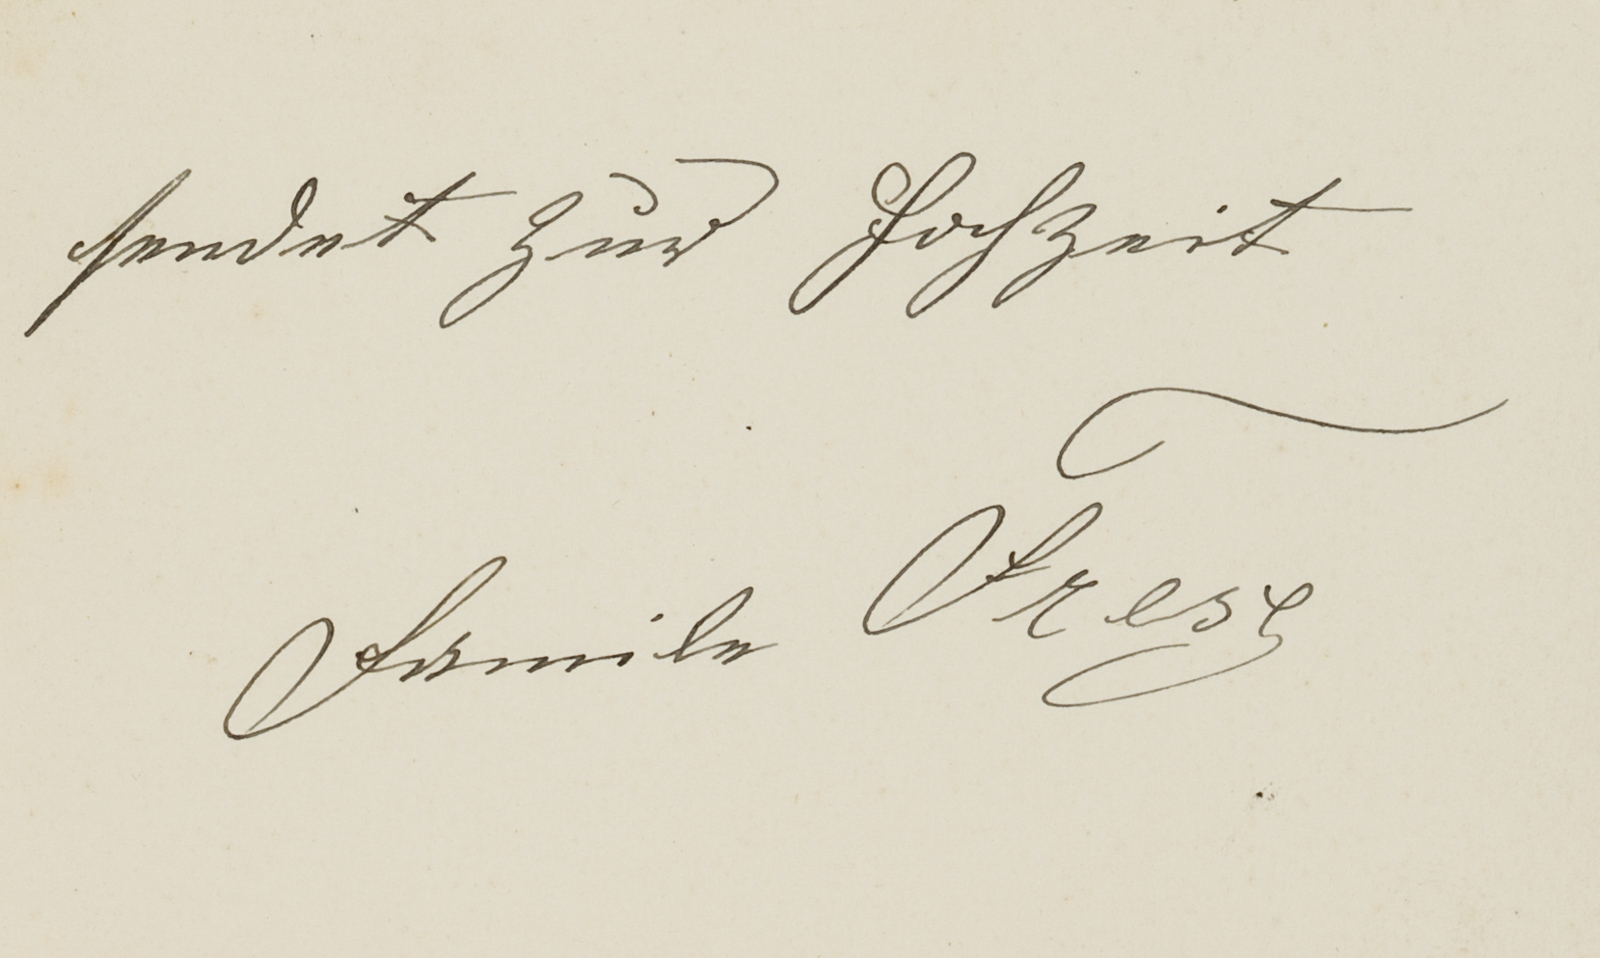 sendet zur Hochzeit
Familie Fresz